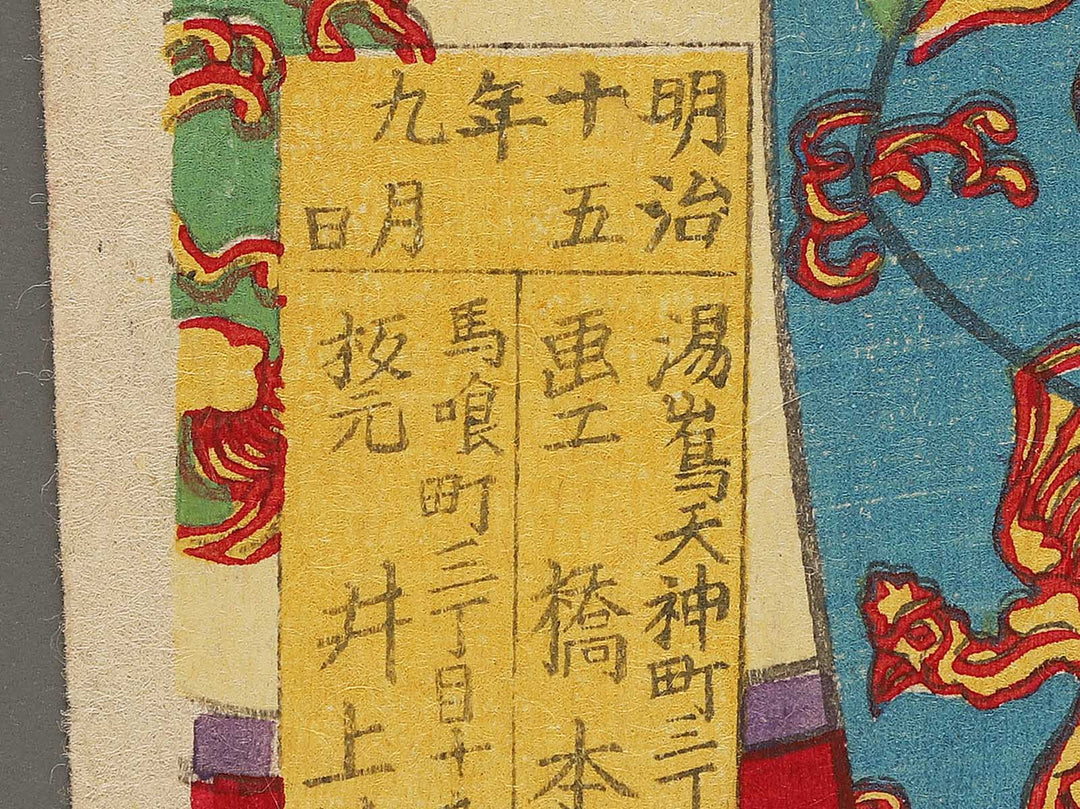 明治
十五
年
九月
日
湯嶌天神町三丁
画工 橋本
馬喰町三丁目十
板元 井上